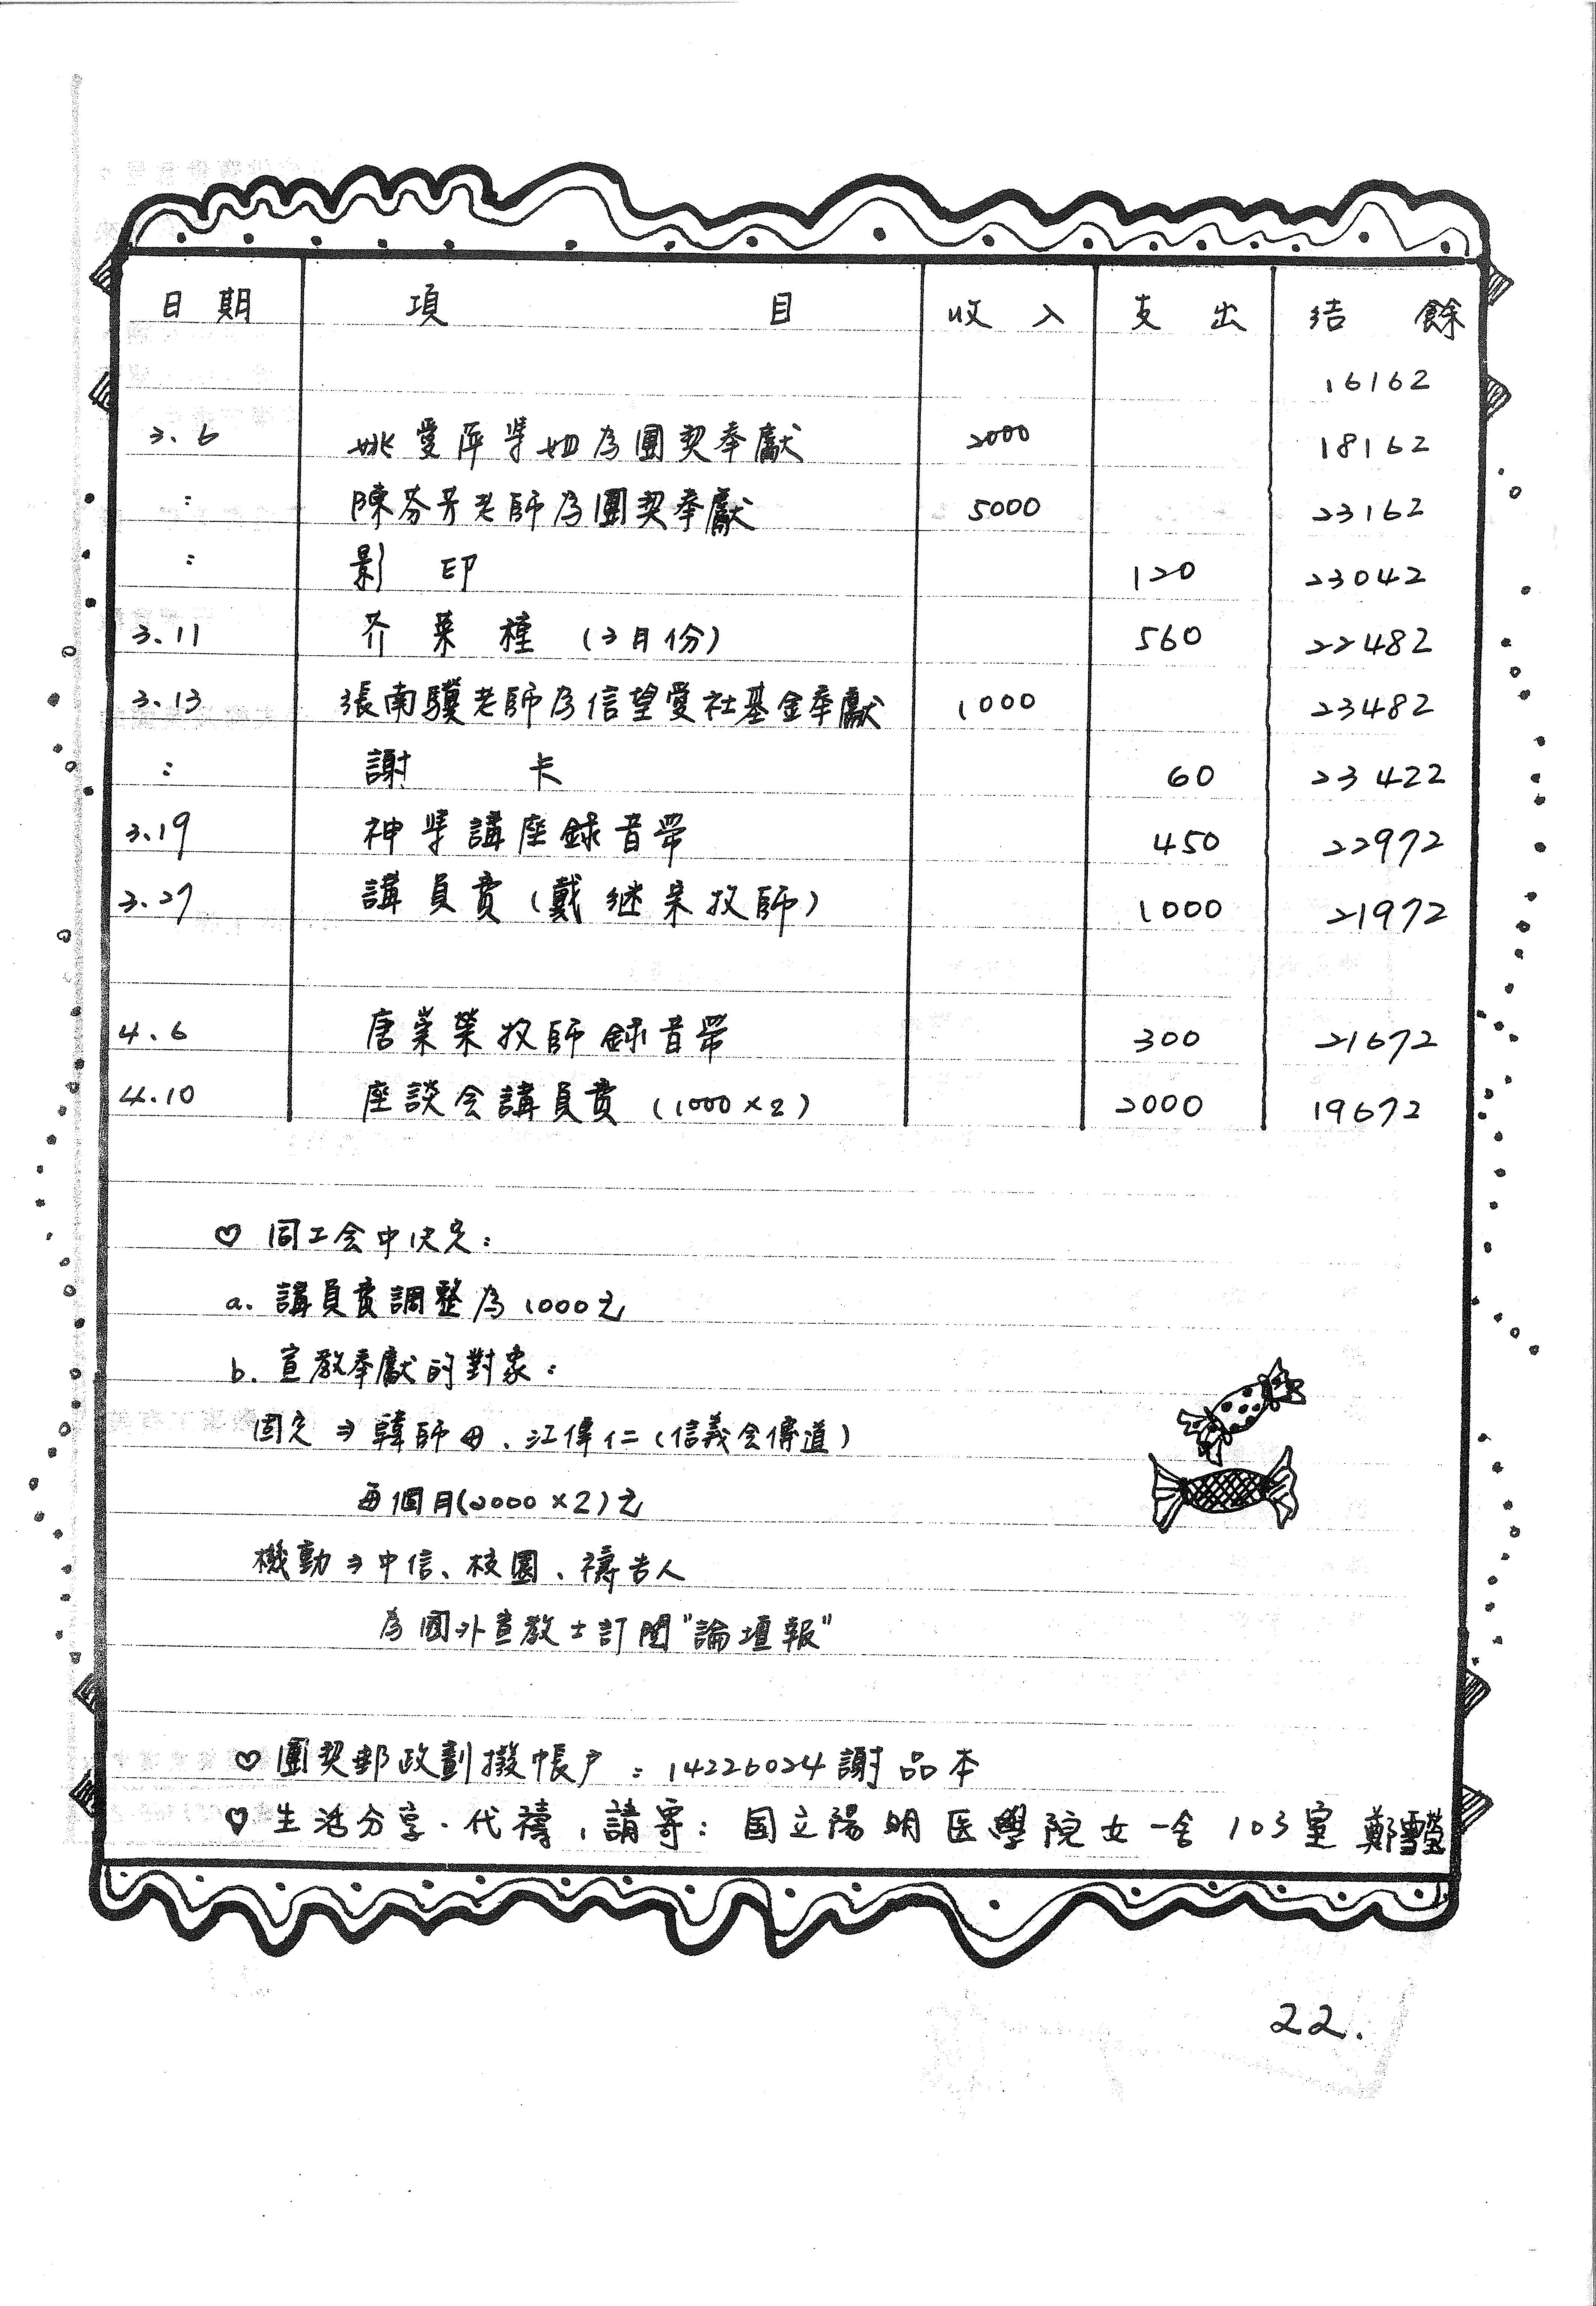 日期 項目 收入 支出 結餘
16162
3.6 姚愛萍學姐為團契奉獻 2000 18162
: 陳芬芳老師為團契奉獻 5000 23162
: 影印 120 23042
3.11 芥菜種(3月份) 560 22482
3.13 張南驥老師為信望愛社基金奉獻 1000 23482
: 謝卡 60 23422
3.19 神學講座錄音帶 450 22972
3.27 講員費(戴继宗牧師) 1000 21972
4.6 唐崇榮牧師錄音帶 300 21672
4.10 座談会講員費(1000×2) 2000 19672
♡ 同工会中決定:
a. 講員費調整為1000元
b. 宣教奉獻的對象:
固定⇒韓師母、江偉仁(信義会傳道)
每個月(2000×2)元
機動⇒中信、校園、禱告人
為國外宣教士訂閱"論壇報"
♡ 團契郵政劃撥帳戶:14226024謝品本
♡ 生活分享.代禱,請寄:国立陽明医學院女一舍103室鄭雪瑩
22.